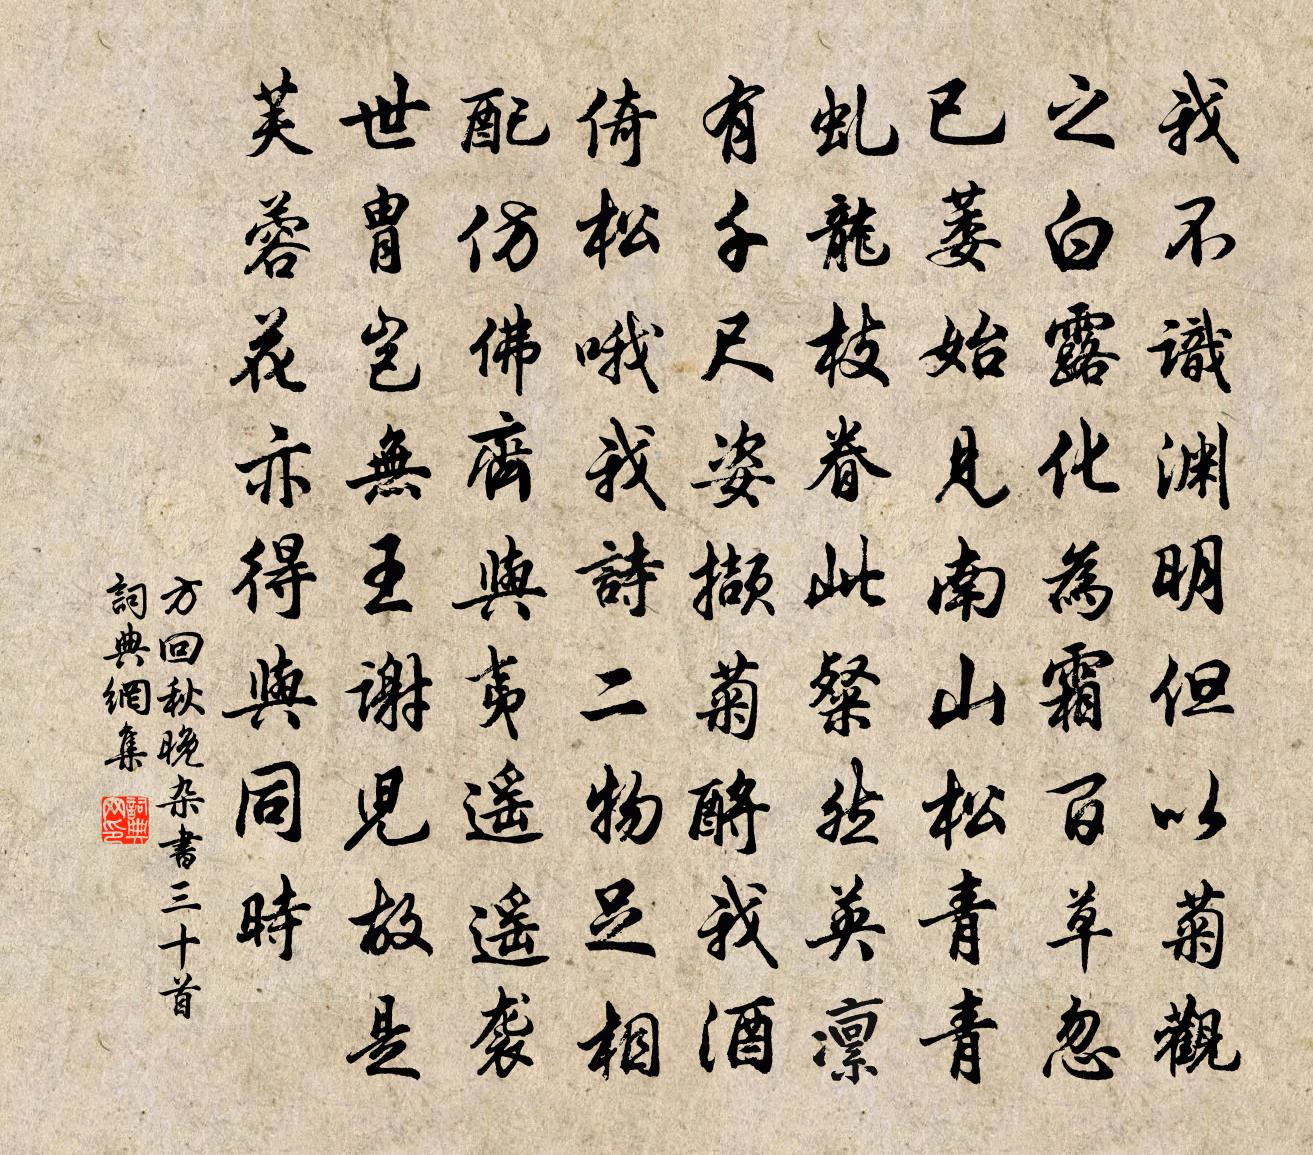 我不識渊明但以菊觀
之白露化為霜百草忽
已萎始見南山松青青
虬龍枝眷此粲然英凛
有千尺姿撷菊酹我酒
倚松哦我詩二物足相
配仿佛齊與夷遥遥袭
世胄岂無王謝児故是
芙蓉花亦得與同時
方回秋晚杂書三十首
詞典網集
詞典网印